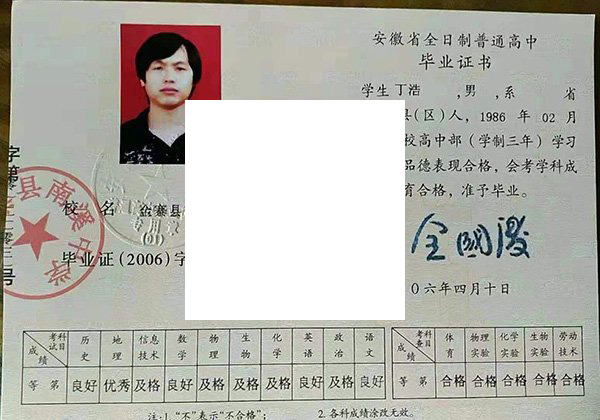 安徽省全日制普通高中
毕业证书
学生丁浩 ,男,系 省
县(区)人,1986 年 02 月
校高中部(学制三年)学习
品德表现合格,会考学科成
育合格,准予毕业。
校 名 金寨县
专用章
(01)
县南溪中学
毕业证(2006)字
字第
号
全国
〇六年四月十日
考试科目 历史 地理 信息技术 数学 物理 生物 化学 英语 政治 语文
成绩
等 第 良好 优秀 及格 良好 及格 及格 及格 良好 良好 良好
考查科目 体育 物理实验 化学实验 生物实验 劳动技术
成绩
等 第 合格 合格 合格 合格 合格
注:1."不"表示"不合格"; 2.各科成绩涂改无效。